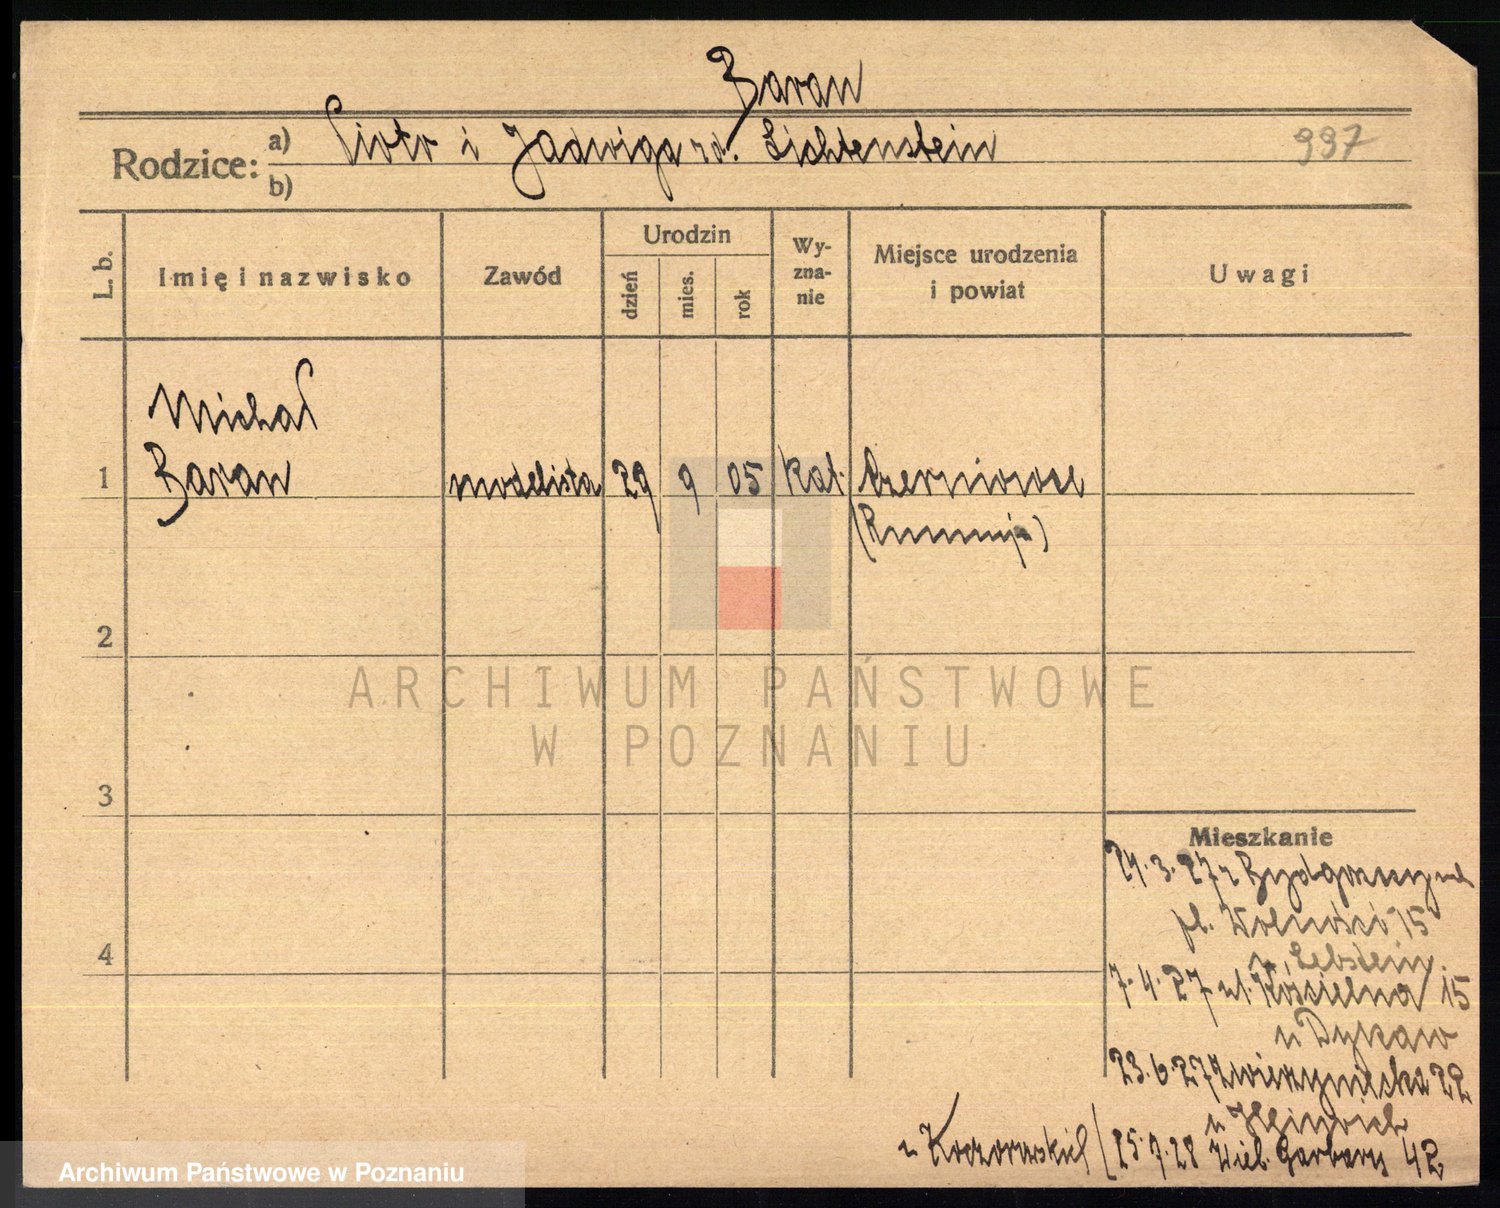 Baran
Rodzice: a) Piotr i Jadwiga rd. Lichtenstein 997
b)
L. b. Imię i nazwisko Zawód Urodzin dzień mies. rok Wy-zna-nie Miejsce urodzenia i powiat Uwagi
Michał
1 Baran modelista 29 9 05 kat. Czerniowce
(Rumunja)
2
ARCHIWUM PAŃSTWOWE
W POZNANIU
3
Mieszkanie
24.3.27 z Bydgoszczy
pl. Wolności 15
4
u Lebstein
7.4.27 ul. Kościelna 15
u Dykaw
23.6.27 Zwierzyniecka 22
u Koczorowskich (25.7.28 Wiel. Garbary 42
Archiwum Państwowe w Poznaniu